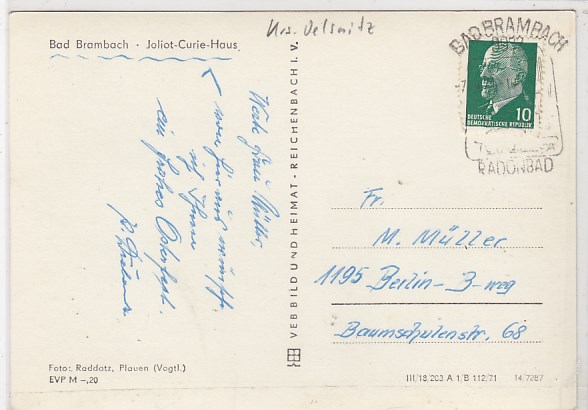 Krs. Oelsnitz
Bad Brambach · Joliot-Curie-Haus
BAD BRAMBACH
RADONBAD
DEUTSCHE
DEMOKRATISCHE REPUBLIK
10
Werte Frau Müller,
von hier aus wünsch
ich Ihnen
ein frohes Osterfest.
VEB BILD UND HEIMAT · REICHENBACH I. V.
Fr.
M. Müller
1195 Berlin-B-weg
Baumschulenstr. 68
Foto: Raddatz, Plauen (Vogtl.)
EVP M –,20
III/18/203 A 1/B 112/71 14/7287